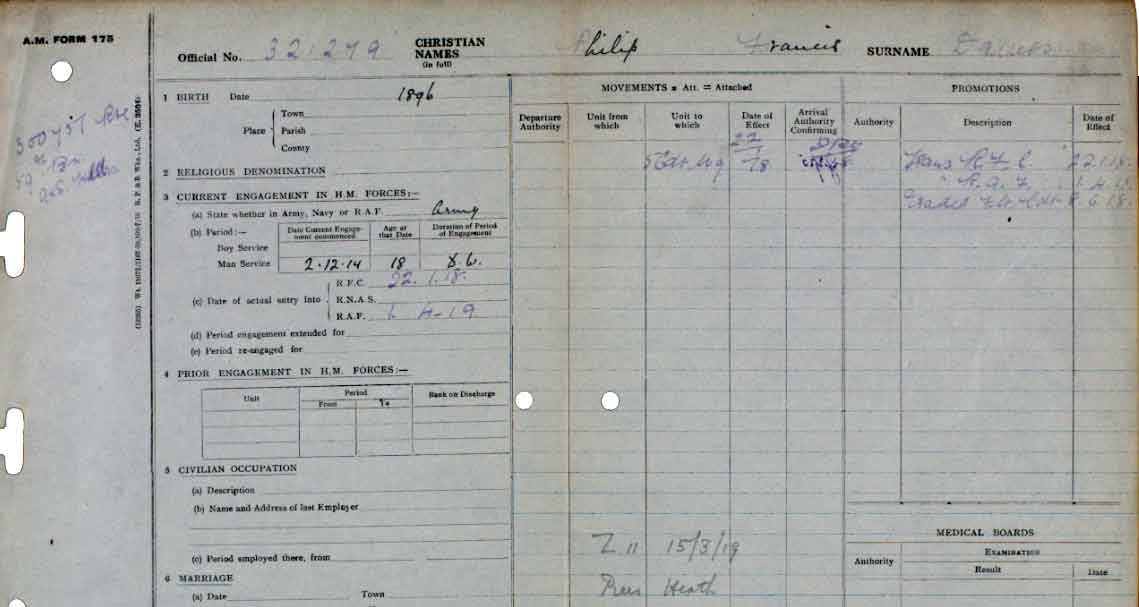 A.M. FORM 175
Official No. 321279 CHRISTIAN NAMES (in full) Philip Francis SURNAME
1 BIRTH Date 1896
Town
Place Parish
County
2 RELIGIOUS DENOMINATION
3 CURRENT ENGAGEMENT IN H.M. FORCES:—
(a) State whether in Army, Navy or R.A.F. Army
(b) Period:— Date Current Engagement commenced Age at that Date Duration of Period of Engagement
Boy Service
Man Service 2.12.14 18
R.F.C. 22.1.18.
(c) Date of actual entry into R.N.A.S.
R.A.F. 1 4-19
(d) Period engagement extended for
(e) Period re-engaged for
4 PRIOR ENGAGEMENT IN H.M. FORCES:—
Unit Period Rank on Discharge
From To
5 CIVILIAN OCCUPATION
(a) Description
(b) Name and Address of last Employer
(c) Period employed there, from
6 MARRIAGE
(a) Date Town
MOVEMENTS Att. = Attached
Departure Authority Unit from which Unit to which Date of Effect Arrival Authority Confirming
22
1
18
Z 11 15/3/19
Prees Heath
PROMOTIONS
Authority Description Date of Effect
Trans R.F.C. 22.1.18.
" R.A.F. 1.4.18
8.6.18.
MEDICAL BOARDS
Authority EXAMINATION
Result Date